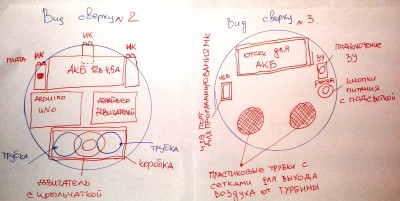 Вид сверху №2
ИК
ИК
ИК
ПЛАТА
АКБ 12в 4,5А
ARDUINO
UNO
ДРАЙВЕР
ДВИГАТЕЛЕЙ
ТРУБКА
ТРУБКА
КОРОБКА
ДВИГАТЕЛЬ
С КРЫЛЬЧАТКОЙ
Вид сверху №3
USB ПОРТ
ДЛЯ ПРОГРАММИРОВАНИЯ МК
ОТСЕК ДЛЯ
АКБ
ПОДКЛЮЧЕНИЕ
ЗУ
ЗУ
КНОПКИ
ПИТАНИЯ
С ПОДСВЕТКОЙ
ПЛАСТИКОВЫЕ ТРУБКИ С
СЕТКАМИ ДЛЯ ВЫХОДА
ВОЗДУХА ОТ ТУРБИНЫ